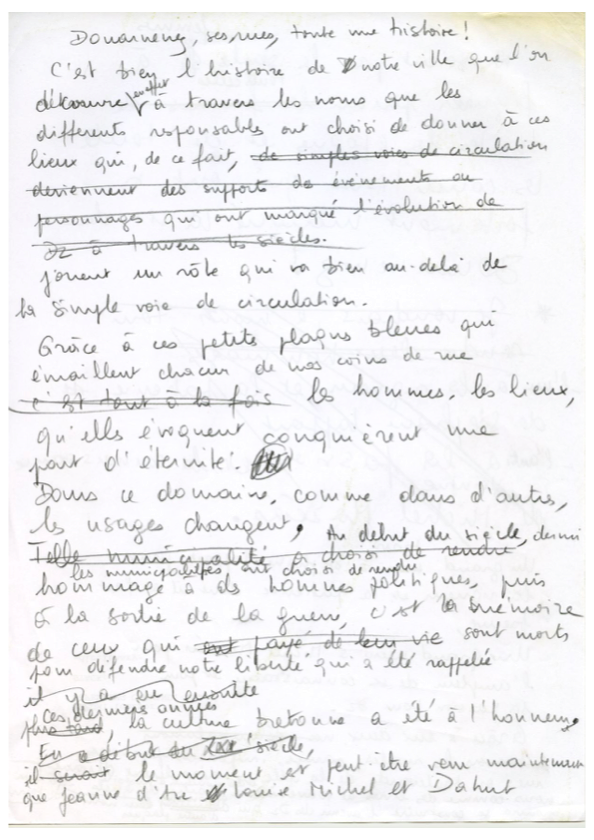 Douarnenez, ses rues, toute une histoire !
C'est bien l'histoire de notre ville que l'on
découvre en effet à travers les noms que les
différents responsables ont choisi de donner à ces
lieux qui, de ce fait, de simples voies de circulation
deviennent des supports de évènements ou
personnages qui ont marqué l'évolution de
Dz à travers les siècles.
jouent un rôle qui va bien au-delà de
la simple voie de circulation.
Grâce à ces petites plaques bleues qui
émaillent chacun de nos coins de rue
c'est tout à la fois les hommes, les lieux,
qu'elles évoquent conquièrent une
part d'éternité.
Dans ce domaine, comme dans d'autres,
les usages changent. Au début du siècle, dernier
Telle municipalité a choisi de rendre
les municipalités ont choisi de rendre
hommage à des hommes politiques, puis
à la sortie de la guerre, c'est la mémoire
de ceux qui ont payé de leur vie sont morts
pour défendre notre liberté qui a été rappelée
il y a eu ensuite
ces dernières années
plus tard, la culture bretonne a été à l'honneur.
En ce début du XXIe siècle,
il serait le moment est peut-être venu maintenant
que Jeanne d'Arc et Louise Michel et Dahut